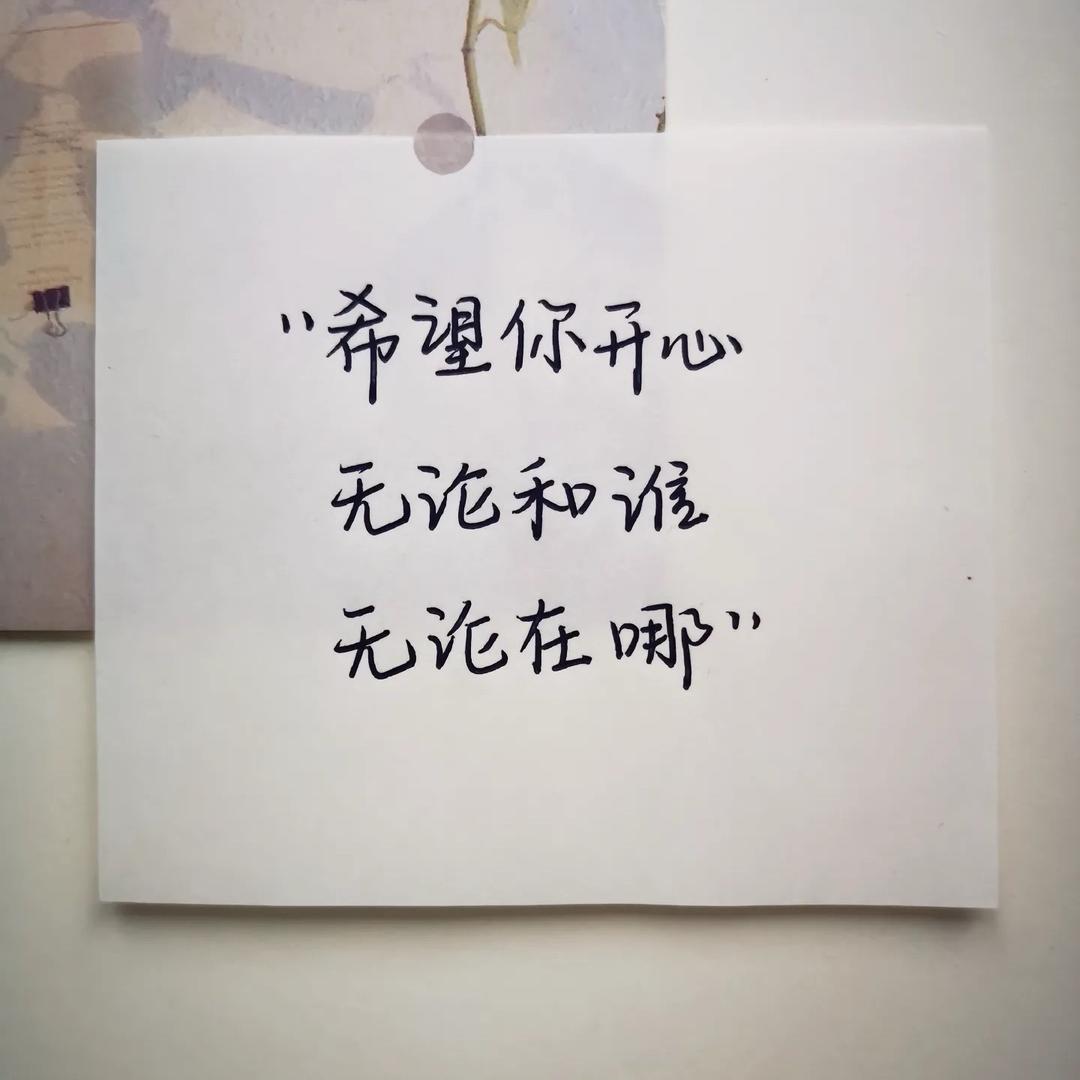 "希望你开心
无论和谁
无论在哪"